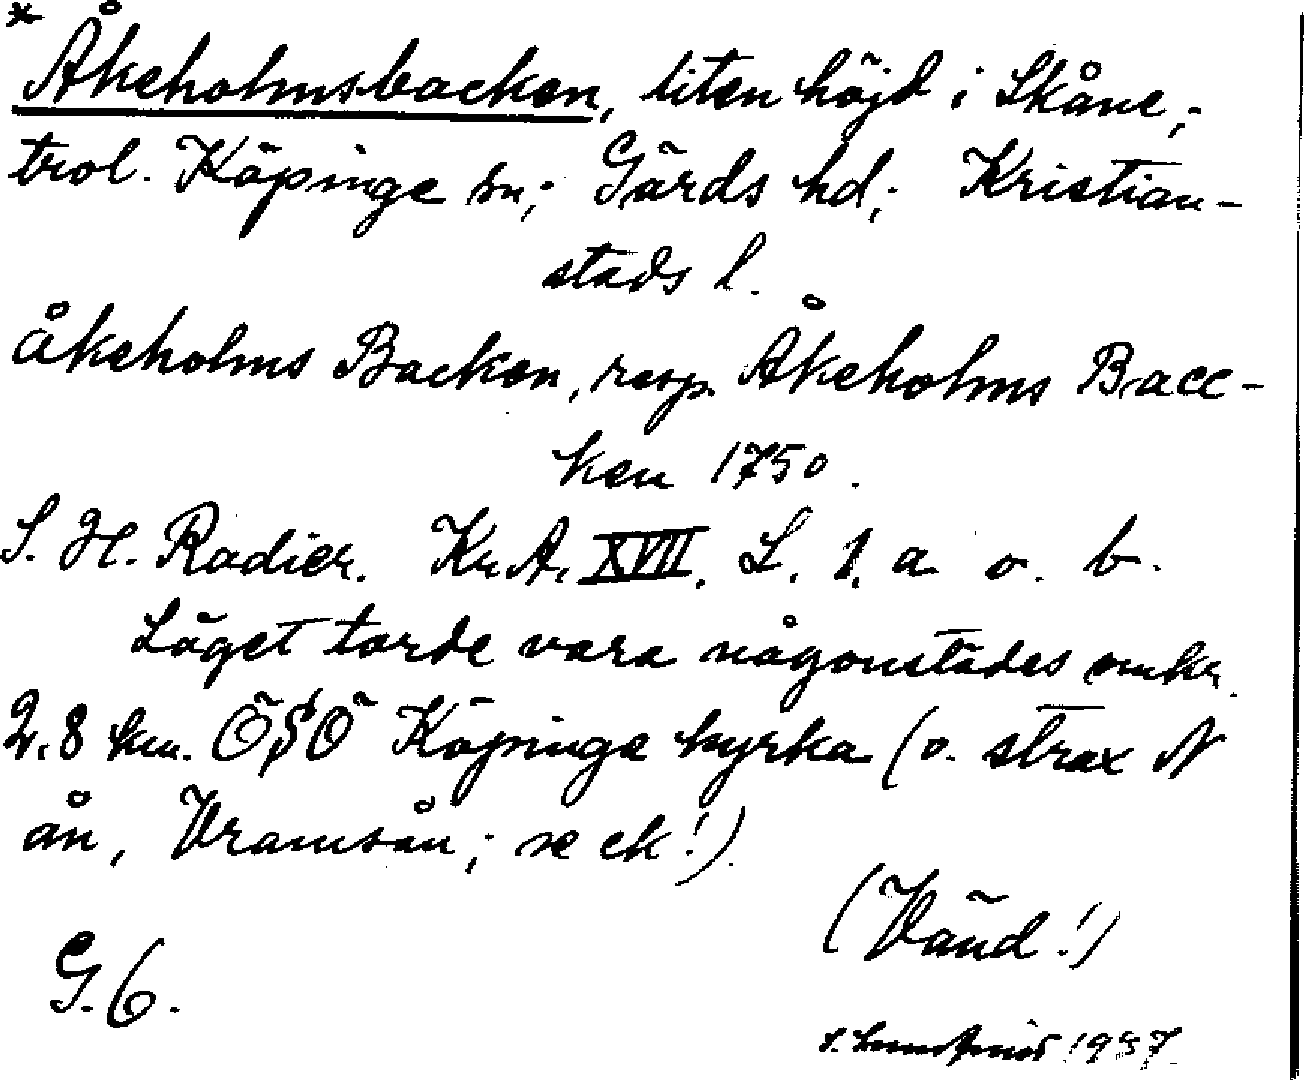 * Åkeholmsbacken, liten höjd i Skåne,;
trol. Köpinge sn,; Gärds hd,; Kristian-
stads l.
åkeholms Backen, resp. Åkeholms Bacc-
ken 1750.
S. H. Radier. Kr. A. XVII. L. 1. a o. b.
Läget torde vara någonstädes omkr.
2,8 km. ÖSÖ Köpinge kyrka (o. strax N
ån, Vramsån,; se ek!).
(Vänd!)
G. 6.
1937